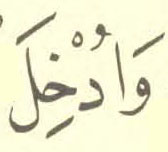 وَاُدْخِلَ